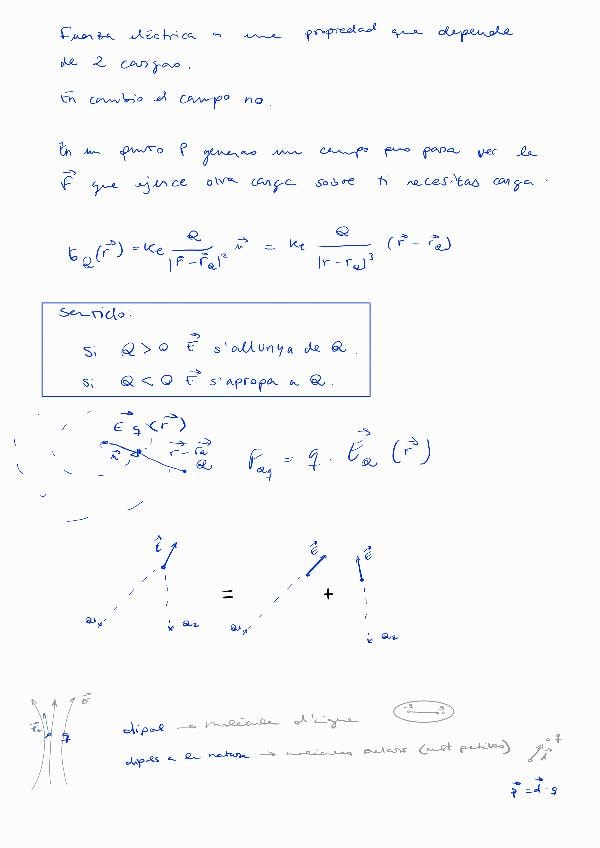 Fuerza eléctrica es una propiedad que depende
de 2 cargas.
En cambio el campo no.
En un punto P generas un campo pero para ver la
F⃗ que ejerce otra carga sobre ti necesitas carga.
E_Q(r⃗) = Ke Q/|r⃗ - r⃗_Q|² û = Ke Q/|r - r_Q|³ (r⃗ - r⃗_Q)
Sentido:
Si Q > 0 E⃗ s'allunya de Q.
Si Q < 0 E⃗ s'apropa a Q.
E⃗q (r⃗)
û r⃗ - r⃗_Q
Q
F_Qq = q · E⃗_Q (r⃗)
E⃗ = E⃗ + E⃗
Q₁ Q₂ Q₁ Q₂
E⃗
q
dipol → molècula d'aigua
-q q
dipols a la natura → molècules (molt petites)
q
d⃗
p⃗ = d⃗ · q